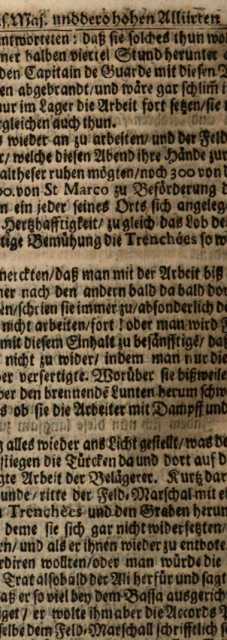 Maj. und dero hohen Alliirten
antworteten: daß sie solches thun wol
ner halben viertel Stund herunter
den Capitain de Guarde mit diesen
en abgebrandt/ und wäre gar schlim
nur im Lager die Arbeit fort setzen/ sie
rgleichen auch thun.
s wieder an zu arbeiten/ und der Feld
r/ welche diesen Abend ihre Hände zur
altheser ruhen mögten/ noch 300 von
00. von St Marco zu Beförderung d
n ein jeder seines Orts sich angeleg
Hertzhafftigkeit/ zu gleich das Lob de
tige Bemühung die Trenchées so w
merckten/ daß man mit der Arbeit biß
ner nach den andern bald da bald do
en/ schrien sie immer zu/ absonderlich d
nicht arbeiten/ fort! oder man wird
mit diesem Einhalt zu besänfftige/ daß
nicht zu wider/ indem man nur die
er verfertigte. Worüber sie bißweile
er den brennende Lunten herum schw
s ob sie die Arbeiter mit Dampff und
g alles wieder ans Licht gestellt/ was de
stiegen die Türcken da und dort auf d
gte Arbeit der Belägerer. Kurtz dar
unde/ ritte der Feld-Marschal mit e
n Trenchées und den Graben herun
deme sie sich gar nicht widersetzten/
en/ und als er ihnen wieder zu entbote
rdiren wollten/ oder man würde die
Trat alsobald der Ali herfür und sagt
aß er so viel bey dem Bassa ausgerich
iget/ er wolte ihm aber die Accords P
selbe dem Feld-Marschall schrifftlich